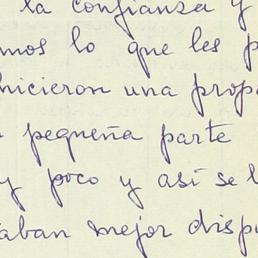 la confianza y
mos lo que les p
hicieron una propo
pequeña parte
y poco y así se l
aban mejor disp